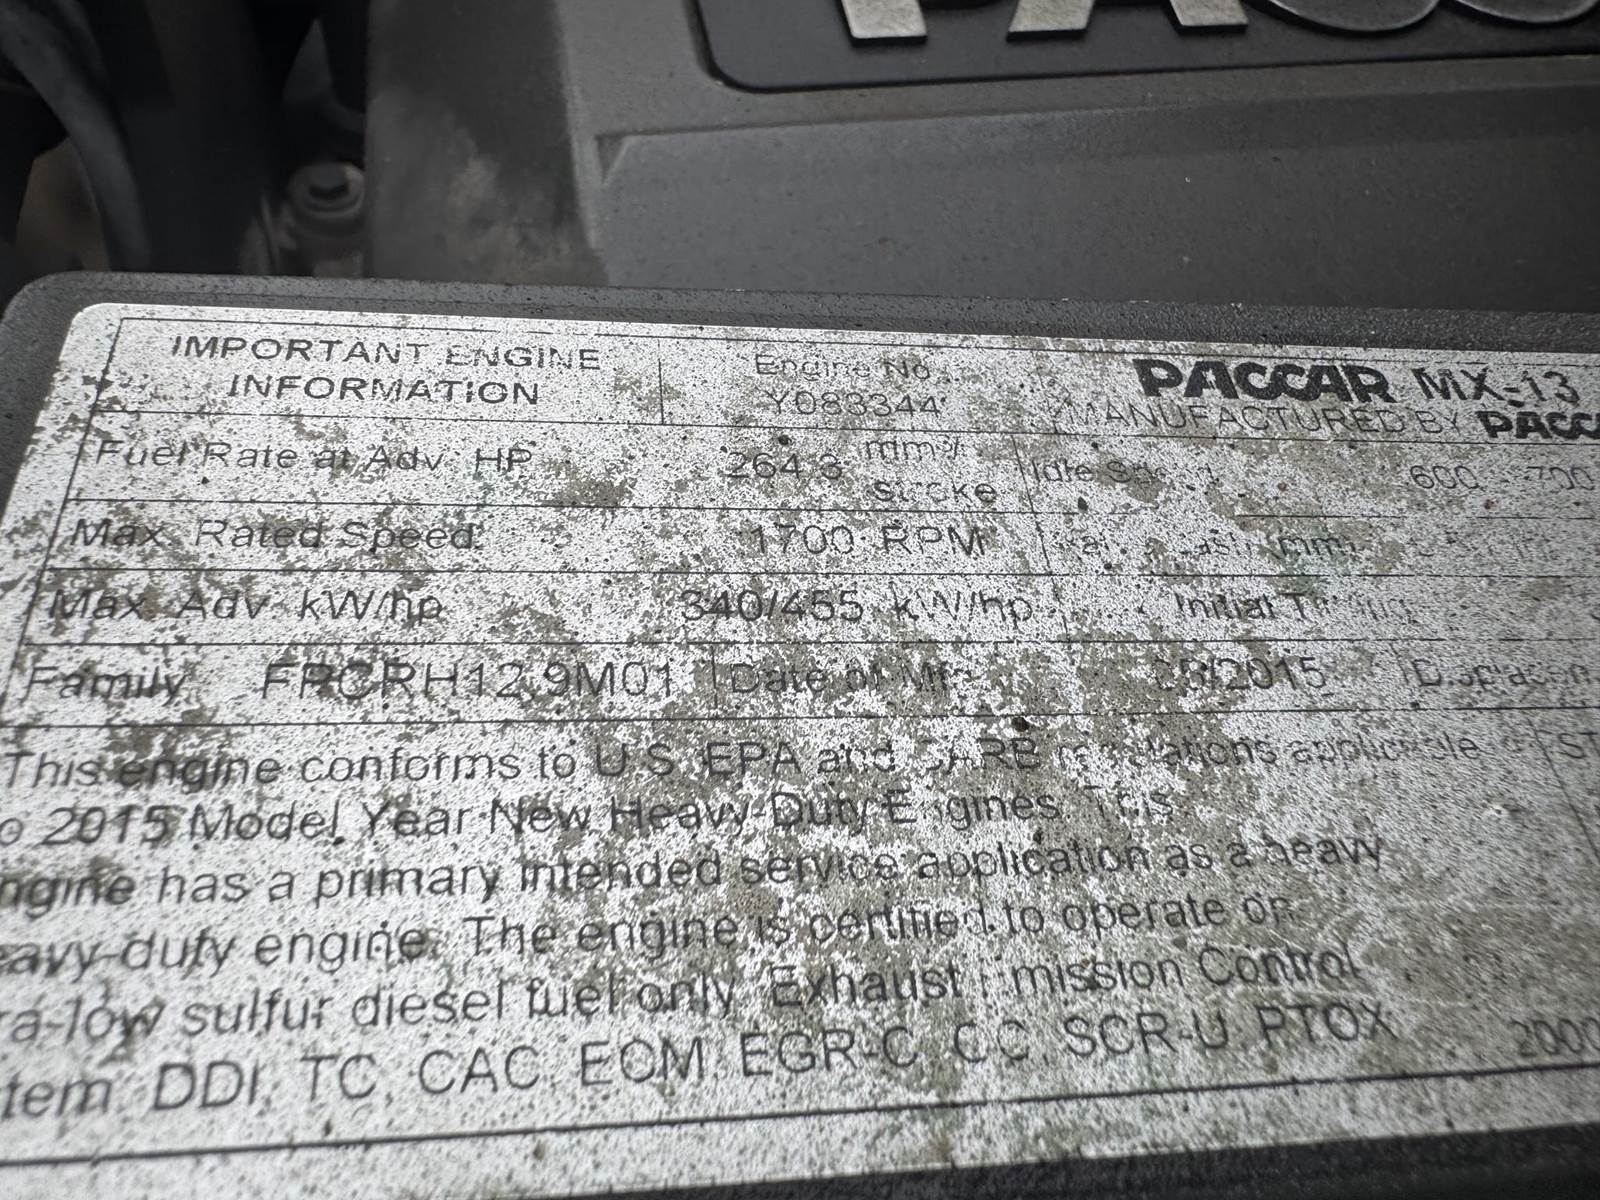 PACC
IMPORTANT ENGINE
INFORMATION
Engine No.
Y083344
PACCAR MX-13
MANUFACTURED BY PACC
Fuel Rate at Adv. HP 264.3 mm³/
stroke
Idle Speed 600 - 700
Max. Rated Speed: 1700 RPM
Max. Adv. kW/hp 340/455 kW/hp
Initial Timing
Family FPCRH12.9M01
Date of Mfr /2015
This engine conforms to U.S. EPA and CARB regulations applicable
o 2015 Model Year New Heavy-Duty Engines. This
ngine has a primary intended service application as a heavy
eavy-duty engine. The engine is certified to operate on
ra-low sulfur diesel fuel only. Exhaust Emission Control
tem DDI, TC, CAC, ECM, EGR-C, OC, SCR-U, PTOX
ST
2000